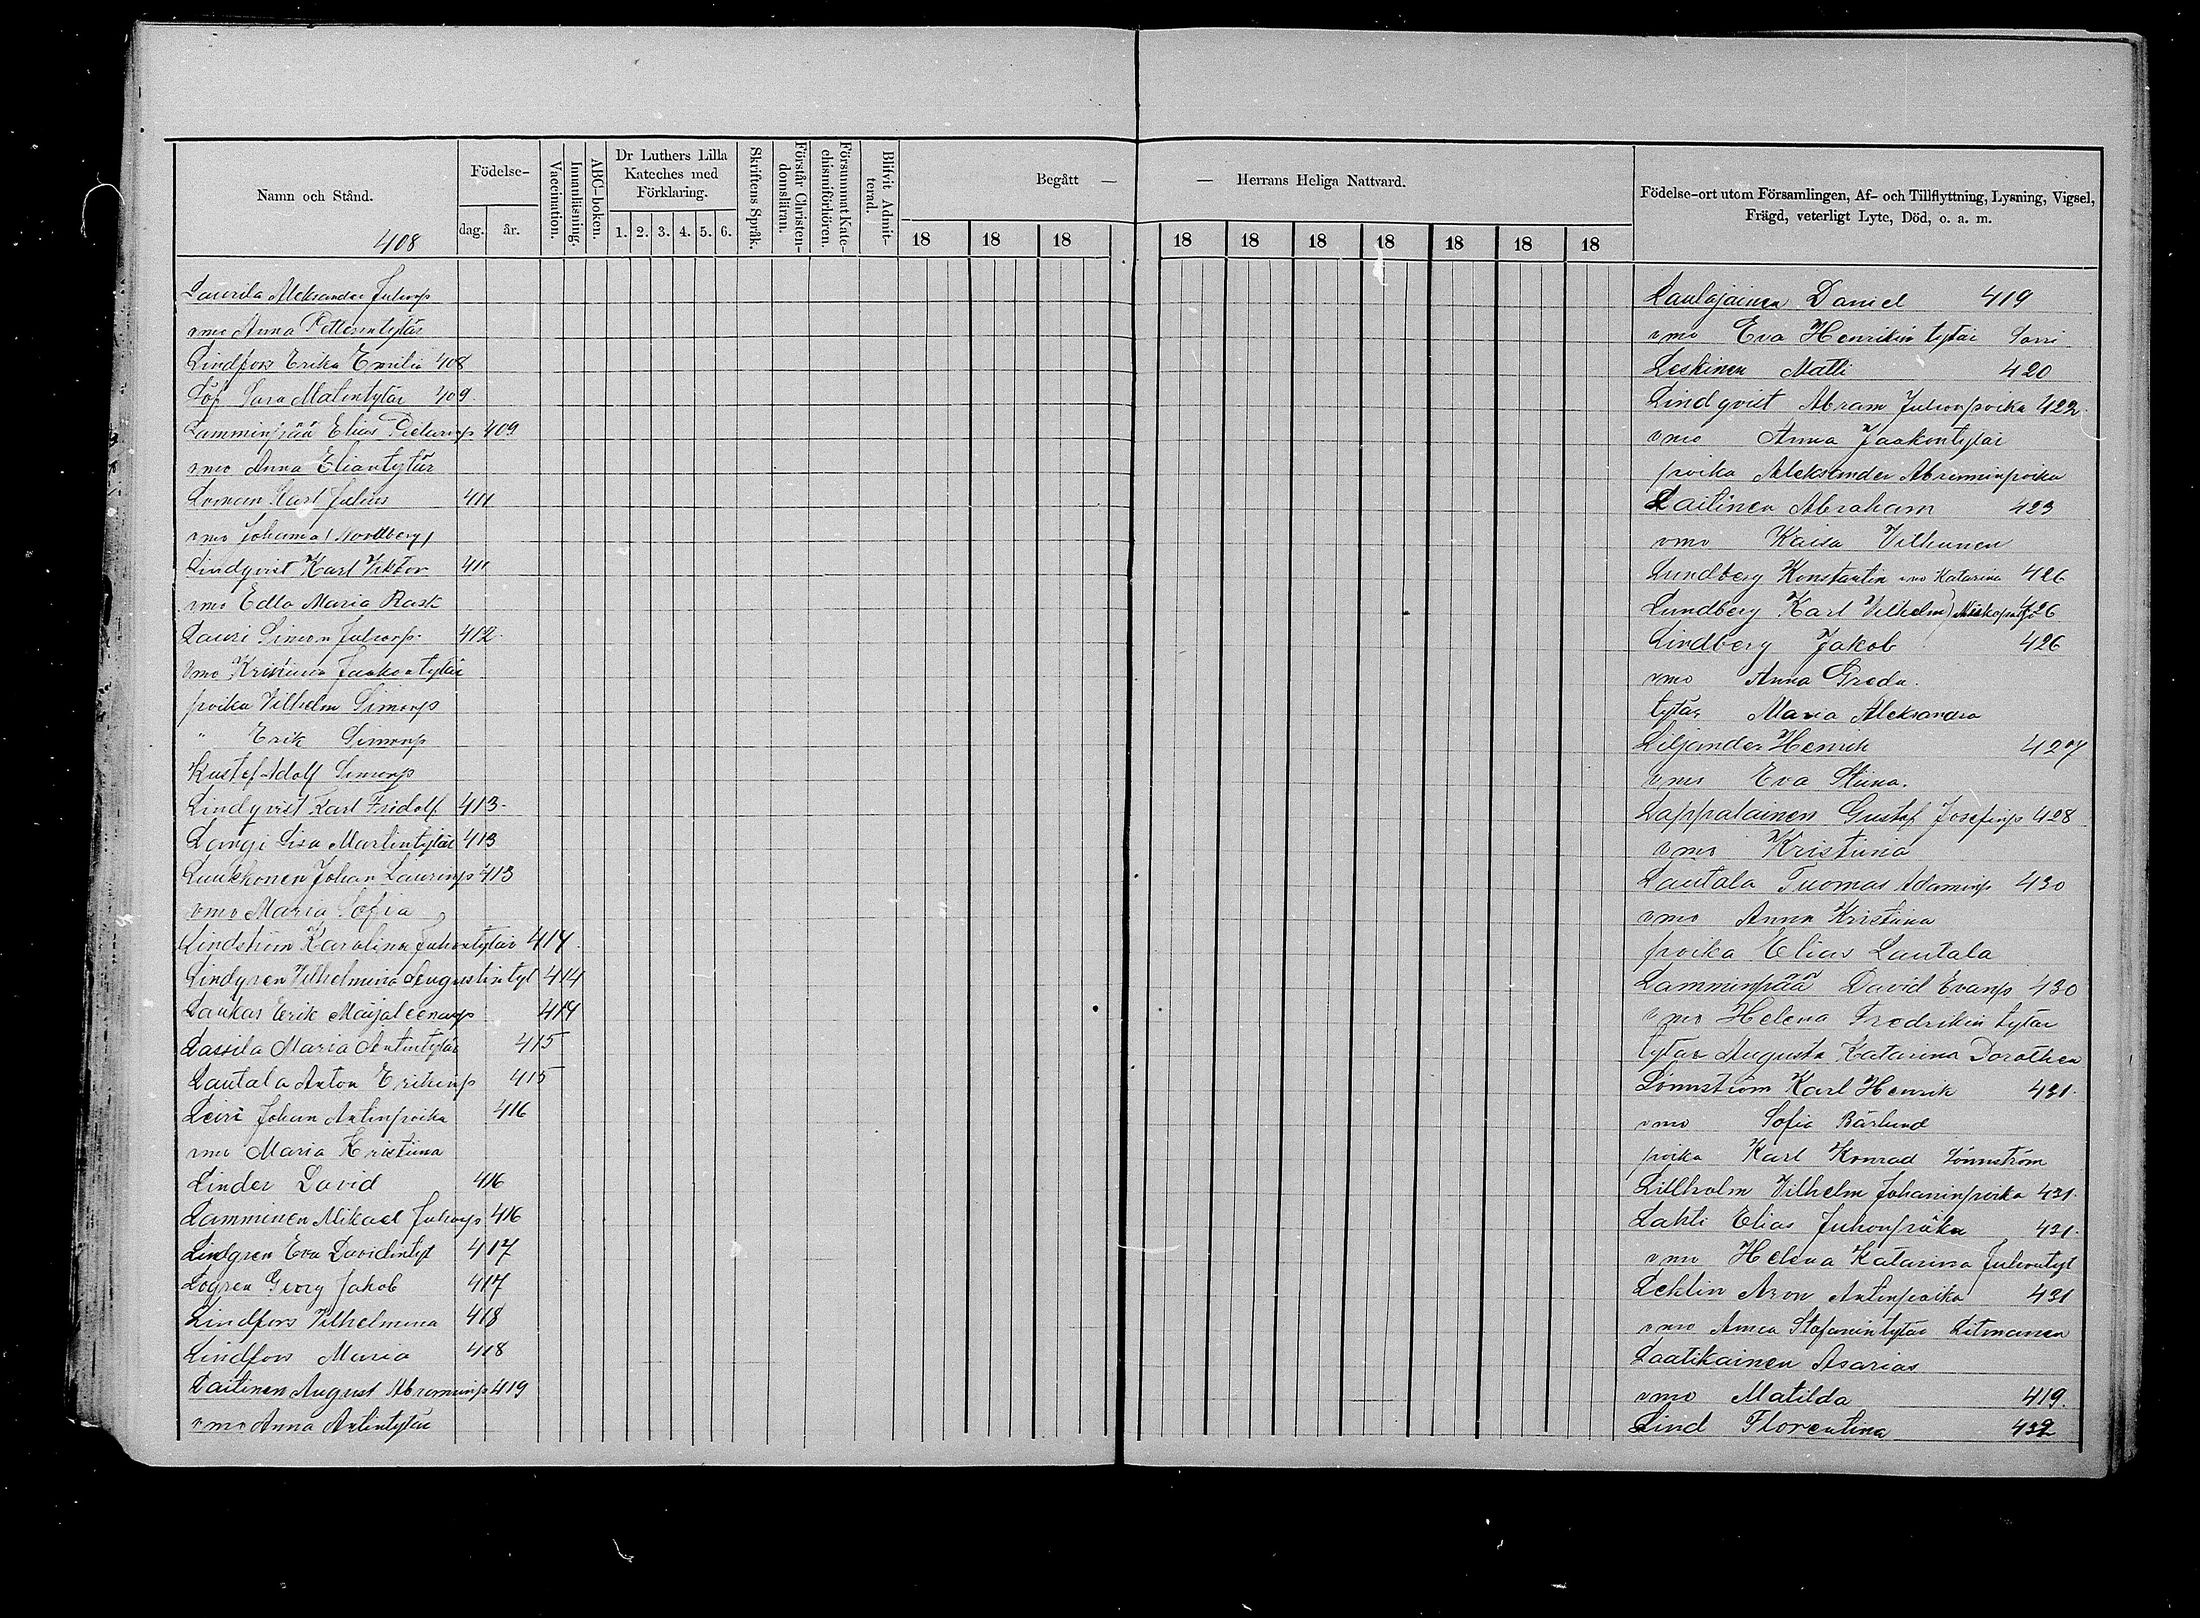 Namn och Stånd.
408
Födelse-
dag.
år.
Vaccination.
Innanläsning.
ABC-boken.
Dr Luthers Lilla
Kateches med
Förklaring.
1. 2. 3. 4. 5. 6.
Skriftens Språk.
Förstår Christen-
domsläran.
Försummat Kate-
chismiförhören.
Blifvit Admit-
terad.
Begått —
— Herrans Heliga Nattvard.
18 18 18 18 18 18 18 18 18 18
Födelse-ort utom Församlingen, Af- och Tillflyttning, Lysning, Vigsel,
Frägd, veterligt Lyte, Död, o. a. m.
Laurila Aleksander Juhonp
vmo Anna Petterintytär
Lindfors Erika Emilia 408
Löf Sara Matintytär 409
Lamminpää Elias Pieturinp 409
vmo Anna Eliantytär
Loman Karl Julius 411
vmo Johanna (Nordberg)
Lindqvist Karl Viktor 411
vmo Edla Maria Rask
Lauri Simon Juhonp. 412
vmo Kristiina Jaakontytär
poika Vilhelm Simonp
" Erik Simonp
Kustaf Adolf Simonp
Lindqvist Karl Fridolf 413
Langi Lisa Martintytär 413
Luukkonen Johan Laurinp 413
vmo Maria Sofia
Lindström Karolina Juhontytär 414
Lindgren Vilhelmina Augustintyt 414
Laukas Erik Maijaleenanp 414
Lassila Maria Antintytär 415
Lautala Anton Erikinp 415
Leiri Johan Antinpoika 416
vmo Maria Kristiina
Linder David 416
Lamminen Mikael Juhonp 416
Lindgren Eva Davidintyt 417
Logren Georg Jakob 417
Lindfors Vilhelmina 418
Lindfors Maria 418
Laitinen August Abraminp 419
vmo Anna Antintytär
Laulajainen Daniel 419
vmo Eva Henrikin tytär Sorri
Leskinen Matti 420
Lindqvist Abram Juhonpoika 422
vmo Anna Jaakontytär
poika Aleksander Abraminpoika
Laitinen Abraham 423
vmo Kaisa Vilhunen
Lundberg Konstantin vmo Katarina 426
Lundberg Karl Vilhelm 426
Lindberg Jakob 426
vmo Anna Greda.
tytär Maria Aleksandra
Liljander Henrik 427
vmo Eva Stiina.
Lappalainen Gustaf Josefinp 428
vmo Kristiina
Lautala Tuomas Adaminp 430
vmo Anna Kristiina
poika Elias Lautala
Lamminpää David Evanp 430
vmo Helena Fredrikin tytär
tytär Augusta Katarina Dorothea
Lönnström Karl Henrik 431.
vmo Sofia Bärlund
poika Karl Konrad Lönnström
Lillholm Vilhelm Johaninpoika 431.
Lahti Elias Juhonpoika 431.
vmo Helena Katarina Juhontyt
Lehtin Aron Antinpoika 431
vmo Anna Stafanintytär Litmanen
Laatikainen Asarias
vmo Matilda 419.
Lind Florentina 432